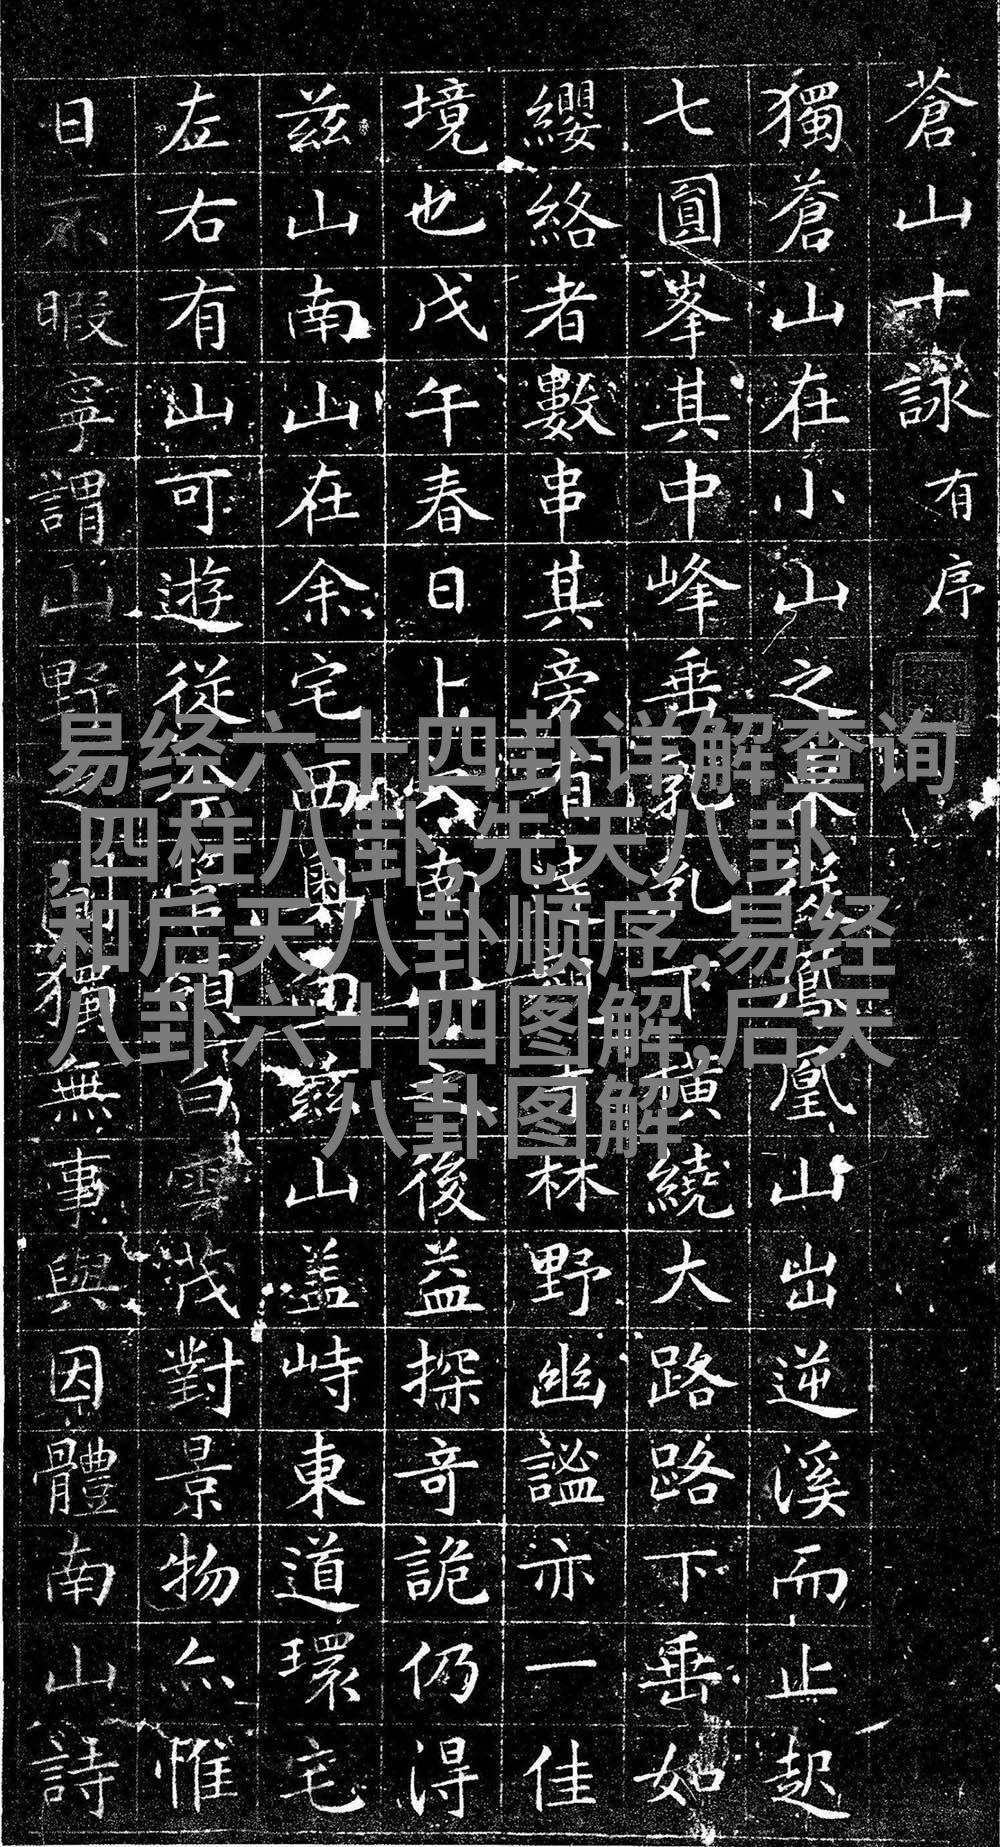 蒼山十詠有序
獨蒼山在小山之凰山出逆溪而止起
七圓峯其中峰垂乳乳下橫繞大路路下垂如
纓絡者數串其旁有林野幽謐亦一佳
境也戊午春日上南山之後益探奇詭仍得
茲山南山在余宅西奧而茲山盖峙東道環宅
左右有山可遊從領白雲茂對景物亦惟
日不暇寧謂山野獨無事與因體南山詩
易经六十四卦详解查询
,四柱八卦,先天八卦
和后天八卦顺序,易经
八卦六十四图解,后天
八卦图解